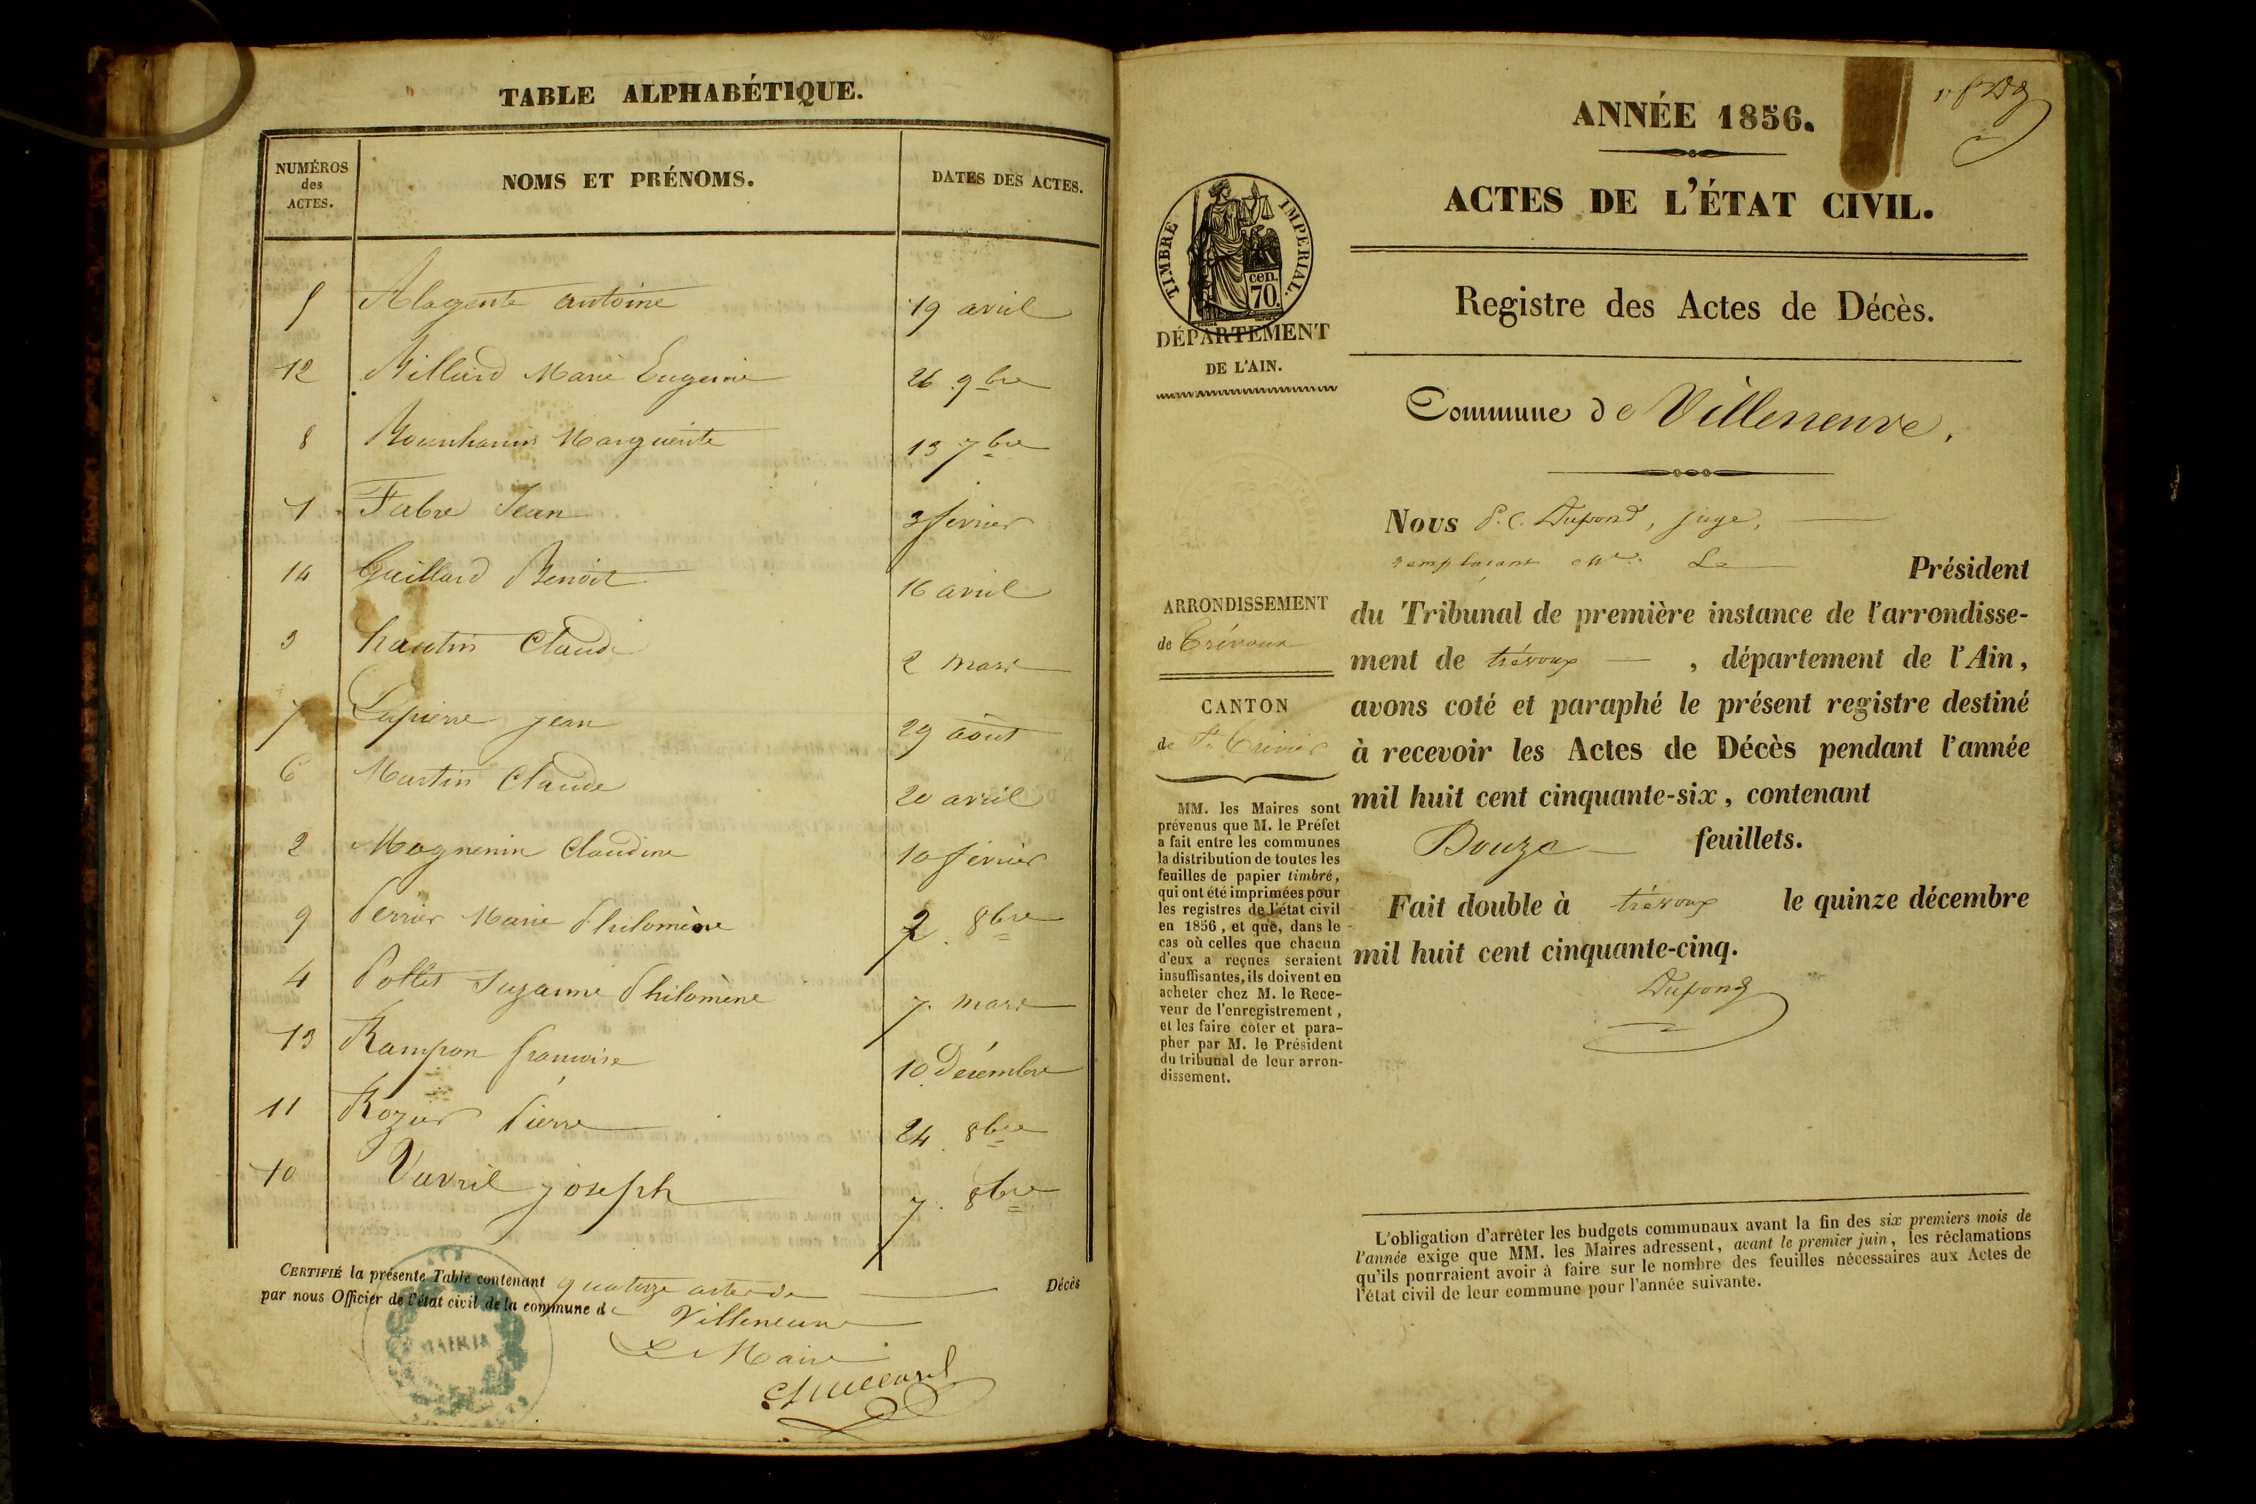 TABLE ALPHABÉTIQUE.
NUMÉROS des ACTES. NOMS ET PRÉNOMS. DATES DES ACTES.
5 Alagente antoine 19 avril
12 Billard Marie Eugenie 26 9bre
8 Marguerite 13 7bre
1 Fabre Jean 3 février
14 Guillard Benoit 16 avril
3 Claude 2 mars
7 Lapierre jean 29 août
6 Martin Claude 20 avril
2 Magnenin Claudine 10 février
9 Perrier Marie Philomène 2 8bre
4 Pollet Suzanne Philomène 7 mars
13 Rampon francoise 10 Décembre
11 Rozier Pierre 24 8bre
10 Vavril joseph 7 8bre
CERTIFIÉ la présente Table contenant quatorze actes de Décès
par nous Officier de l'état civil de la commune de Villeneuve
Le Maire
MAIRIE
ANNÉE 1856.
ACTES DE L'ÉTAT CIVIL.
TIMBRE IMPERIAL.
cen.
70.
DÉPARTEMENT
DE L'AIN.
Registre des Actes de Décès.
Commune de Villeneuve.
Nous P. C. Dupond, juge,
remplaçant Mr. Le Président
du Tribunal de première instance de l'arrondisse-
ment de trévoux, département de l'Ain,
avons coté et paraphé le présent registre destiné
à recevoir les Actes de Décès pendant l'année
mil huit cent cinquante-six, contenant
Douze feuillets.
Fait double à trévoux le quinze décembre
mil huit cent cinquante-cinq.
Dupond
ARRONDISSEMENT
de Trévoux
CANTON
de St. Trivier
MM. les Maires sont
prévenus que M. le Préfet
a fait entre les communes
la distribution de toutes les
feuilles de papier timbré,
qui ont été imprimées pour
les registres de l'état civil
en 1856, et que, dans le
cas où celles que chacun
d'eux a reçues seraient
insuffisantes, ils doivent en
acheter chez M. le Rece-
veur de l'enregistrement,
et les faire coter et para-
pher par M. le Président
du tribunal de leur arron-
dissement.
L'obligation d'arrêter les budgets communaux avant la fin des six premiers mois de
l'année exige que MM. les Maires adressent, avant le premier juin, les réclamations
qu'ils pourraient avoir à faire sur le nombre des feuilles nécessaires aux Actes de
l'état civil de leur commune pour l'année suivante.